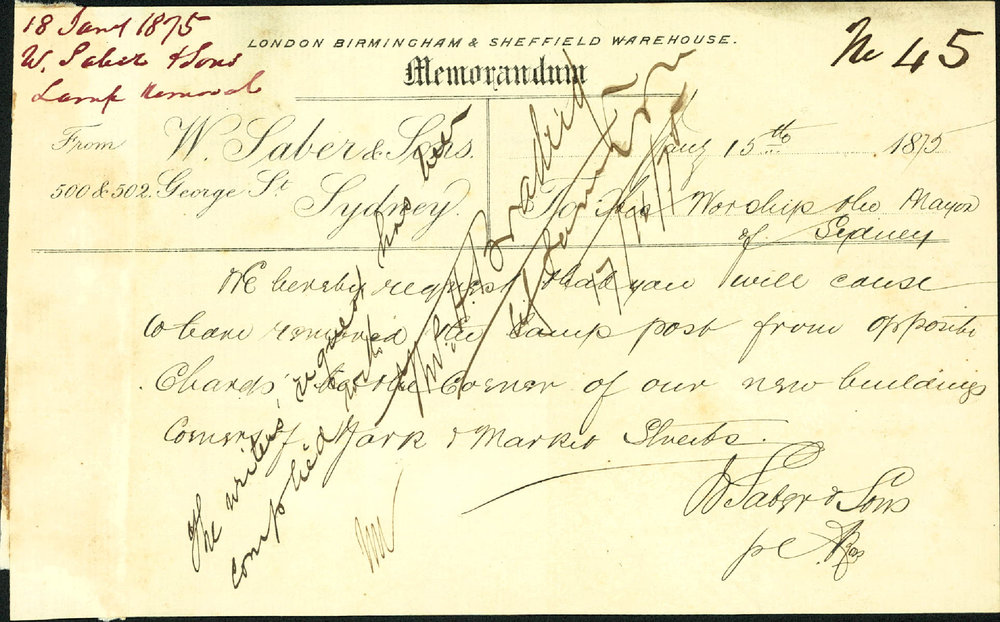 18 Jany 1875
W. Saber & Sons
Lamp Removal
No 45
LONDON BIRMINGHAM & SHEFFIELD WAREHOUSE.
Memorandum
From W. Saber & Sons.
500 & 502. George St
Sydney.
Jany 15th 1875
To His Worship the Mayor
of Sydney
We hereby request that you will cause
to have removed the lamp post from opposite
Chards' to the Corner of our new buildings
Corner of York & Market Streets.
W Saber & Sons
The writers' request has been
complied with